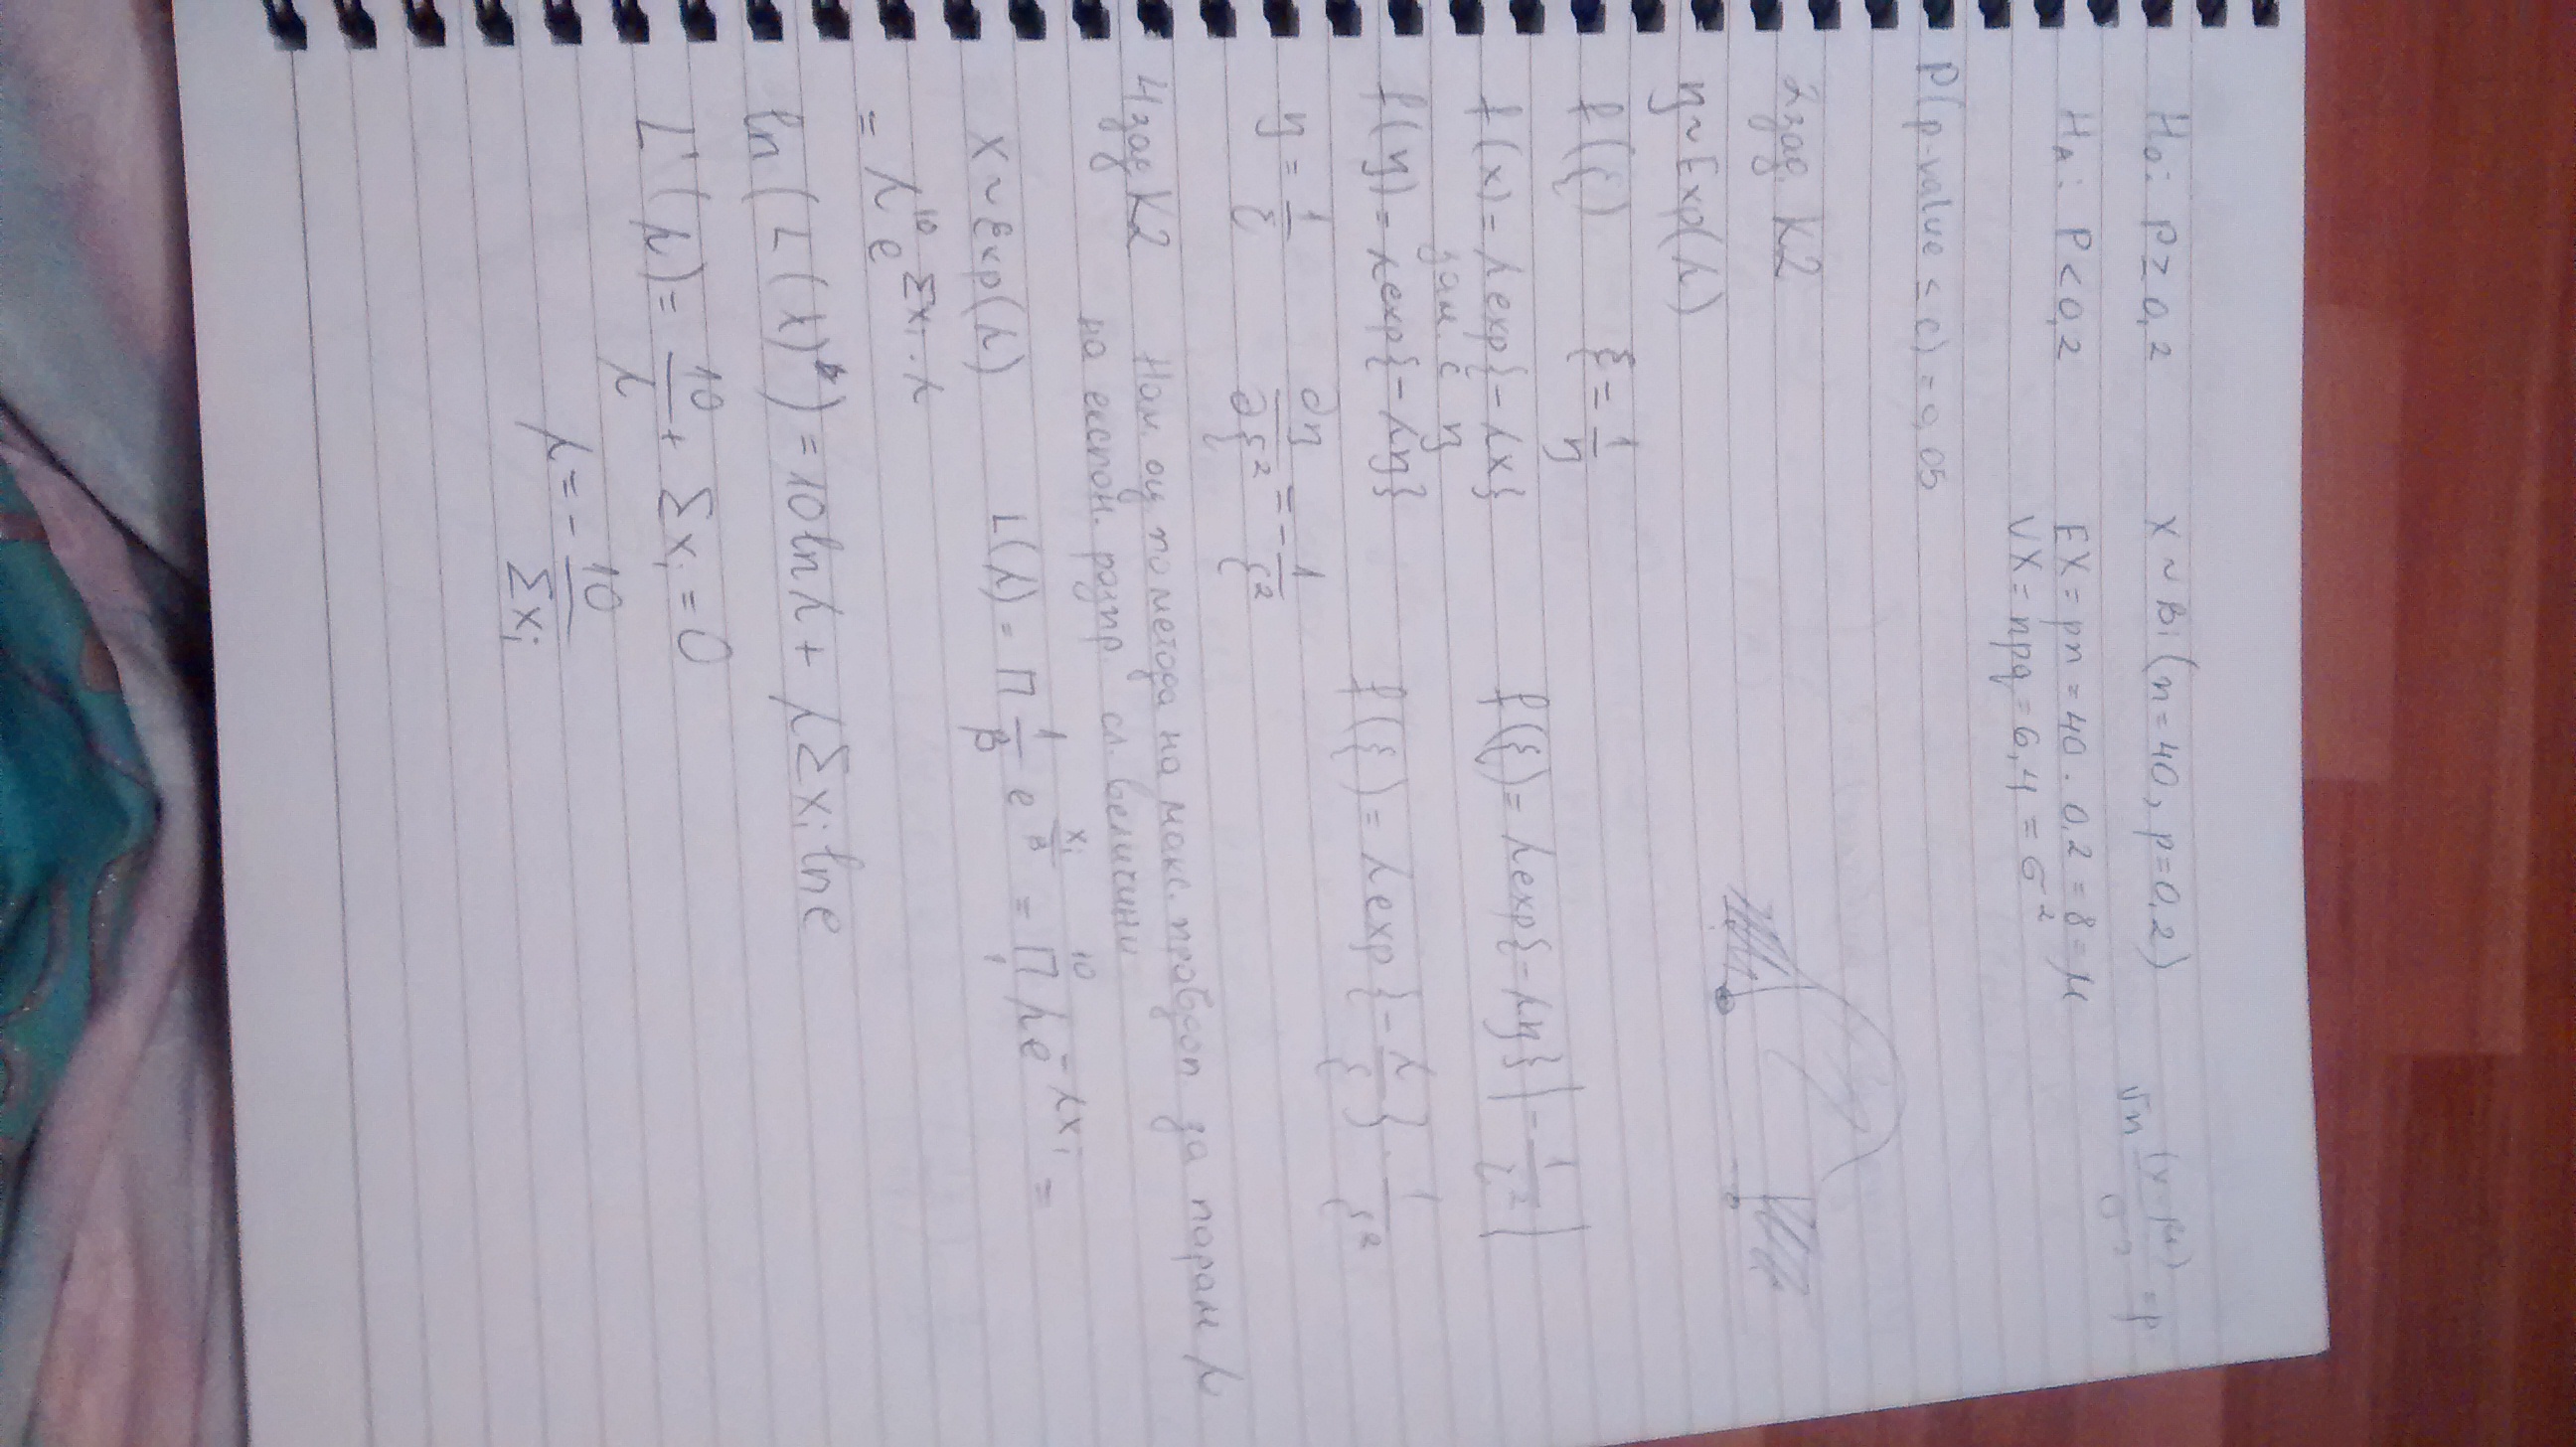 H₀: P ≥ 0,2 X ~ Bi (n=40, p=0,2) √n (x-μ)/σ² = p
H_A: P < 0,2 EX = pn = 40 . 0,2 = 8 = μ
VX = npq = 6,4 = σ²
P(p-value < c) = 0,05
2 зад. К2
η ~ Exp(λ)
f(ξ) ξ = 1/η
f(x) = λexp{-λx} f(ξ) = λexp{-λη} |-1/ξ²|
зам. с η
f(η) = λexp{-λη} f(ξ) = λexp{-λ/ξ} . 1/ξ²
η = 1/ξ ∂η/∂ξ² = -1/ξ²
4 зад К2 Нам. оц по метода на макс. правдоп за парам λ
на експон. разпр. сл. величини
X ~ Exp(λ) L(λ) = Π 1/β e^(xᵢ/β) = Π₁¹⁰ λe^(-λxᵢ) =
= λ¹⁰ e^(Σxᵢ.λ)
ln(L(λ)) = 10lnλ + λΣxᵢ lne
L'(λ) = 10/λ + Σxᵢ = 0
λ = - 10/Σxᵢ